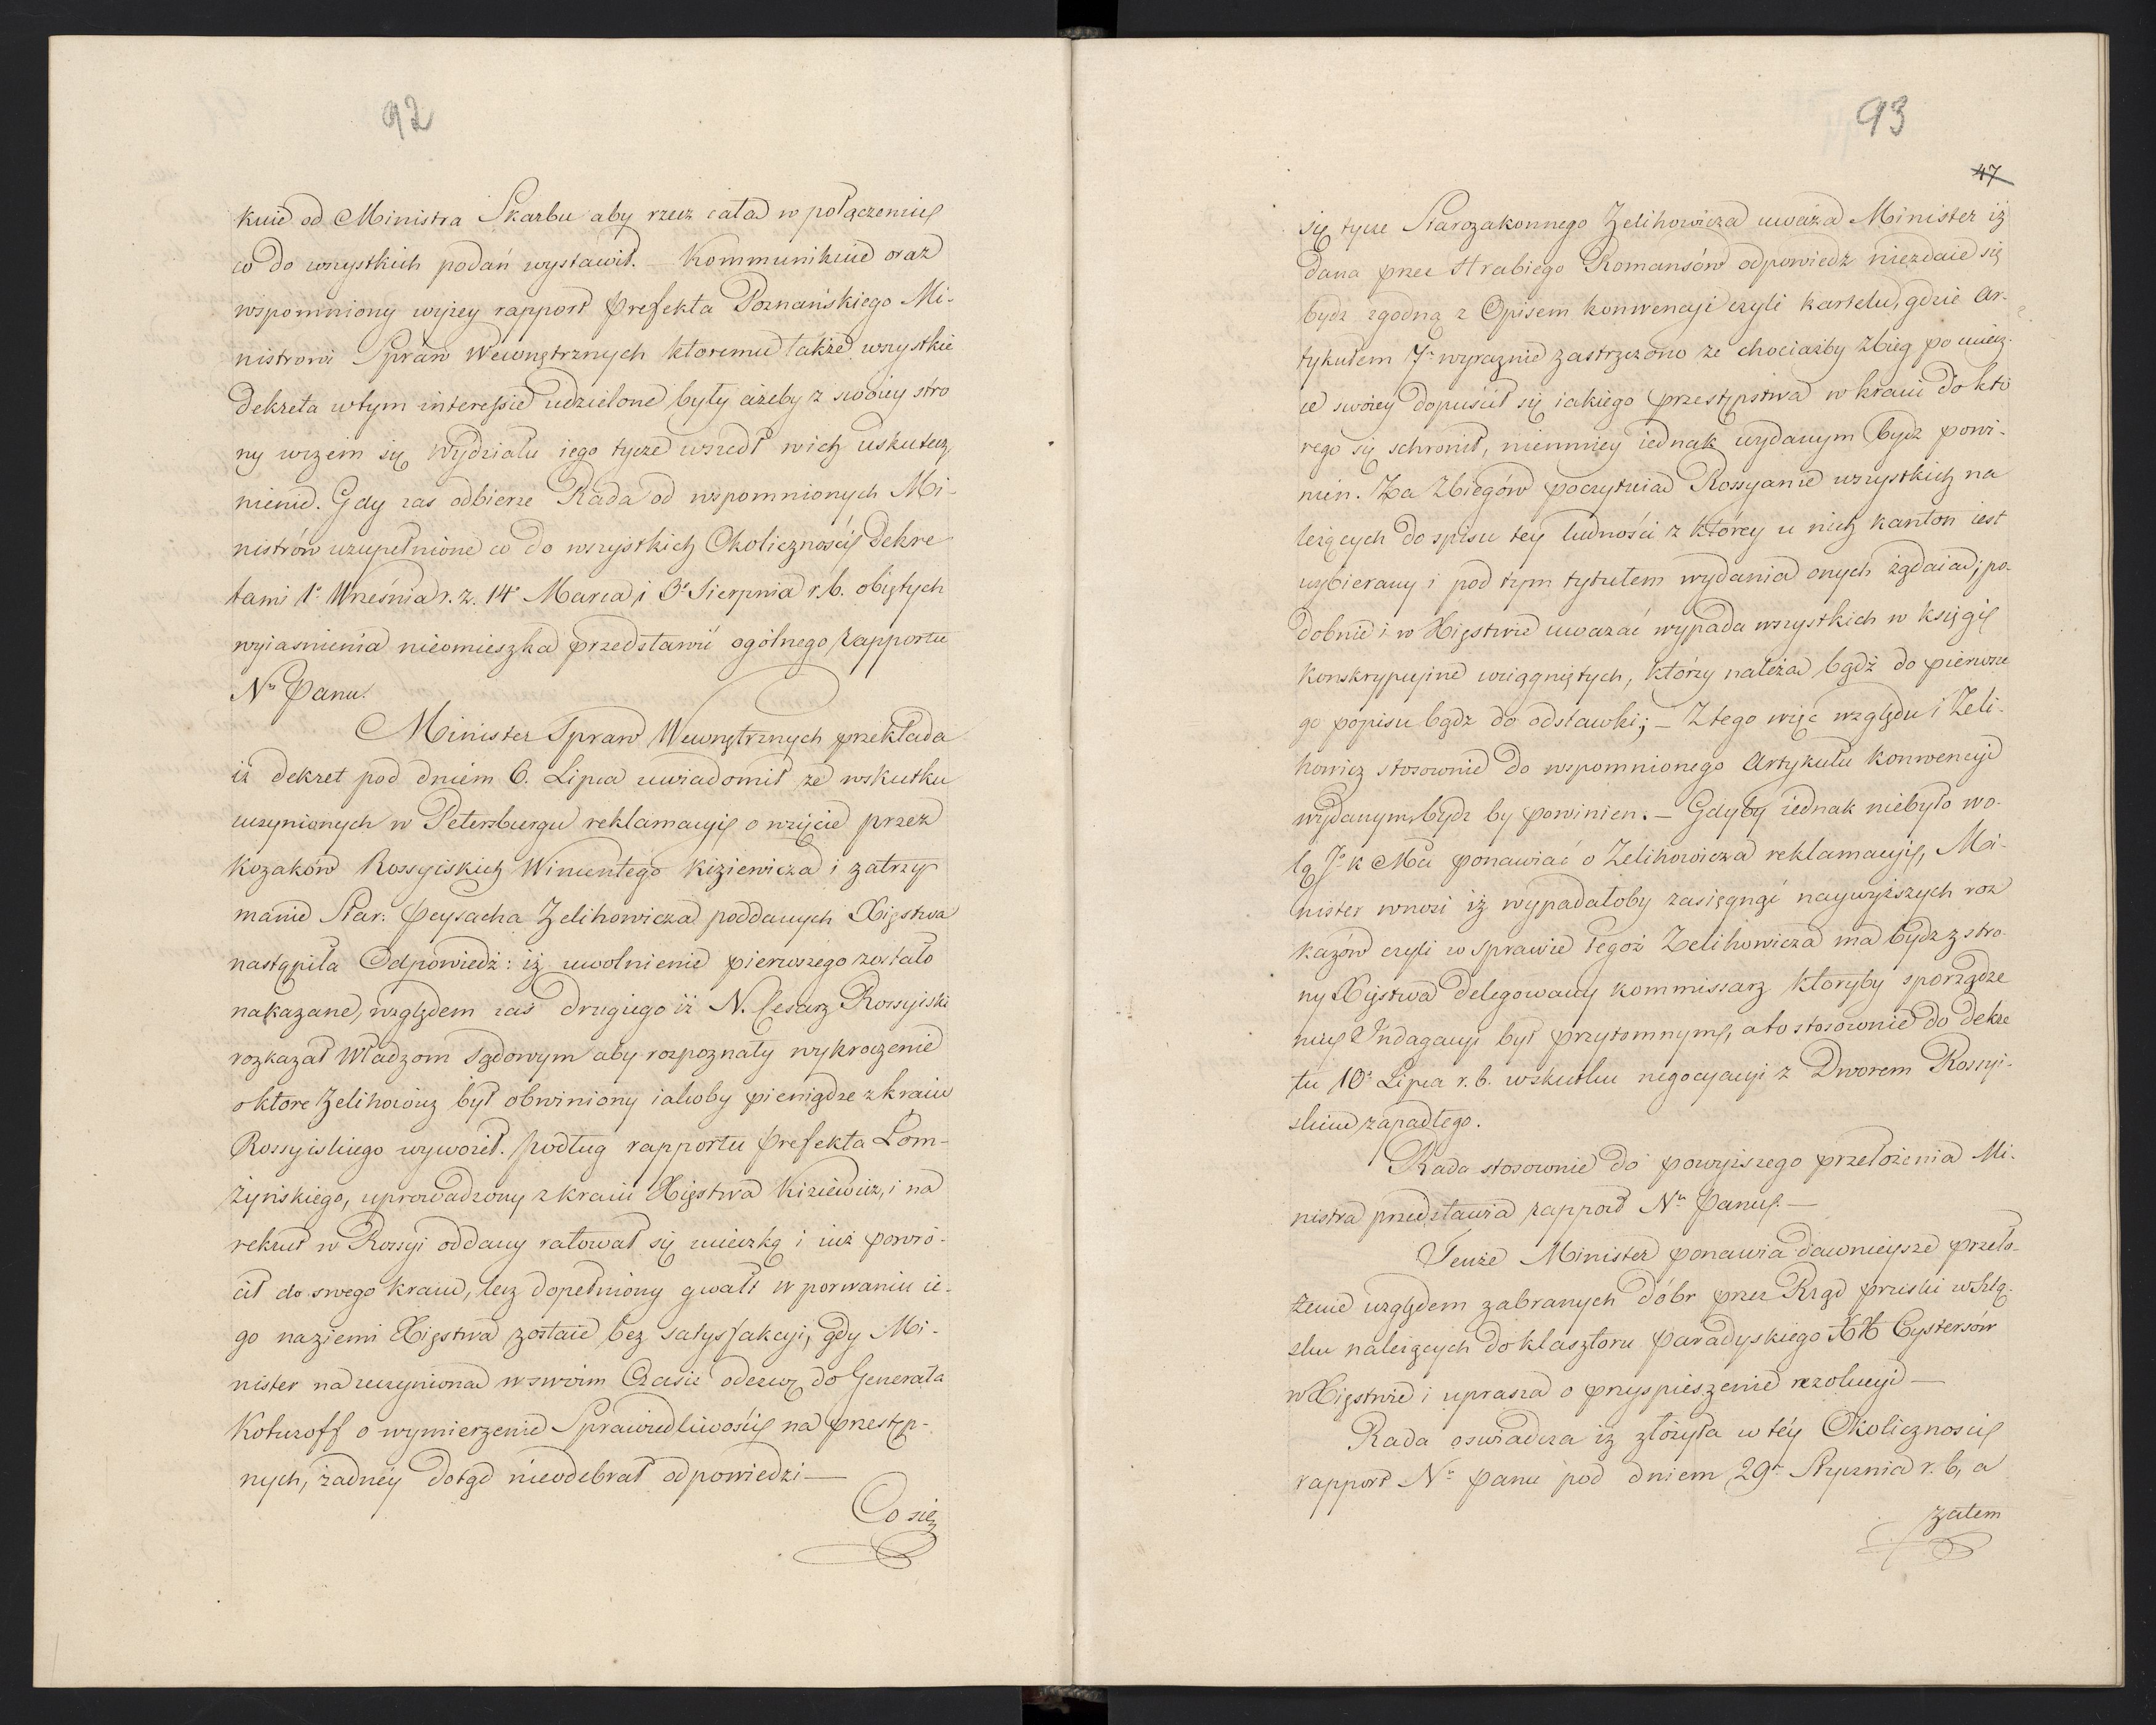 92
kuie od Ministra Skarbu aby rzecz cała w połączeniu
co do wszystkich podań wystawił. — Kommunikuie oraz
wspomniony wyżey rapport Prefekta Poznańskiego Mi-
nistrowi Spraw Wewnętrznych ktoremu także wszystkie
Dekreta w tym interessie udzielone były ażeby z swoiey stro
ny w czem się Wydziału iego tycze wszedł w ich uskutecz
nienie. Gdy zas odbierze Rada od wspomnionych Mi-
nistrów uzupełnione co do wszystkich Okolicznościy Dekre
tami 1o Września r. z. 14o Marca i 3o Sierpnia r. b. obiętych
wyiasnienia nieomieszka przedstawić ogólnego Rapportu
No Panu.
Minister Spraw Wewnętrznych przekłada
iż dekret pod dniem 6. Lipca uwiadomił że wskutku
uczynionych w Petersburgu reklamacyi o wzięcie przez
Kozaków Rossyiskich Wincentego Kiziewicza i zatrzy
manie Star: Peysacha Zelihowicza poddanych Xięstwa
nastąpiła Odpowiedź: iż uwolnienie pierwszego zostało
nakazane, względem zaś drugiego iż N. Cesarz Rossyiski
rozkazał Władzom Sądowym aby rozpoznały wykroczenie
o ktore Zelihowicz był obwiniony iakoby pieniądze z kraiu
Rossyiskiego wywoził. Podług rapportu Prefekta Łom-
żyńskiego, uprowadzony z kraiu Xięstwa Kiziewicz, i na
rekruta w Rossyi oddany ratował się ucieczką i iuż powró-
cił do swego kraiu, lecz dopełniony gwałt w porwaniu ie-
go na ziemi Xięstwa zostaie bez satysfakcyi, gdy Mi-
nister na uczynioną w swoim Czasie odezwę do Generała
Kotuzoff o wymierzenie Sprawiedliwościy na przestęp-
nych, żadney dotąd nieodebrał odpowiedzi —
Co się
93
47
się tycze Starozakonnego Zelihowicza uważa Minister iż
dana przez Hrabiego Romansów odpowiedź niezdaie się
bydź zgodną z Opisem konwencyi czyli kartelu, gdzie ar-
tykułem 7o wyraznie zastrzeżono że chociażby zbieg po uciecz
ce swóiey dopuścił się iakiego przestępstwa w kraiu do któ
rego się schronił, niemniey iednak wydanym bydź powi-
nien. Za zbiegów poczytuią Rossyanie wszystkich na
leżących do spisu tey ludności z którey u nich kanton iest
wybierany i pod tym tytułem wydania onych żądaią; po-
dobnie i w Xięstwie uważać wypada wszystkich w księgi
konskrypcyine wciągniętych, którzy należą bądź do pierwsze
go popisu bądź do odstawki; — Z tego więc względu i Zeli-
howicz stosownie do wspomnionego Artykułu konwencyi
wydanym bydź by powinien. — Gdyby iednak niebyło wo-
lą J. K. Mci ponawiać o Zelihowicza reklamacyi, Mi-
nister wnosi iż wypadałoby zasięgnąć naywyższych roz
kazów czyli w sprawie tegoż Zelihowicza ma bydź z stro-
ny Xięstwa delegowany kommissarz któryby sporządze
niu Indagacyi był przytomnym, a to stosownie do dekre
tu 10o Lipca r. b. wskutku negocyacyi z Dworem Rossyi-
skim zapadłego.
Rada stosownie do powyższego przełożenia Mi-
nistra przedstawia rapport No Panu. —
Tenże Minister ponawia dawnieysze przeło-
żenie względem zabranych dóbr przez Rząd pruski w Szlą-
sku należących do klasztoru Paradyskiego XX Cystersów
w Xięstwie i uprasza o przyspieszenie rezolucyi —
Rada oswiadcza iż złożyła w téy Okolicznosci
rapport No Panu pod dniem 29o Stycznia r. b, a
zatem